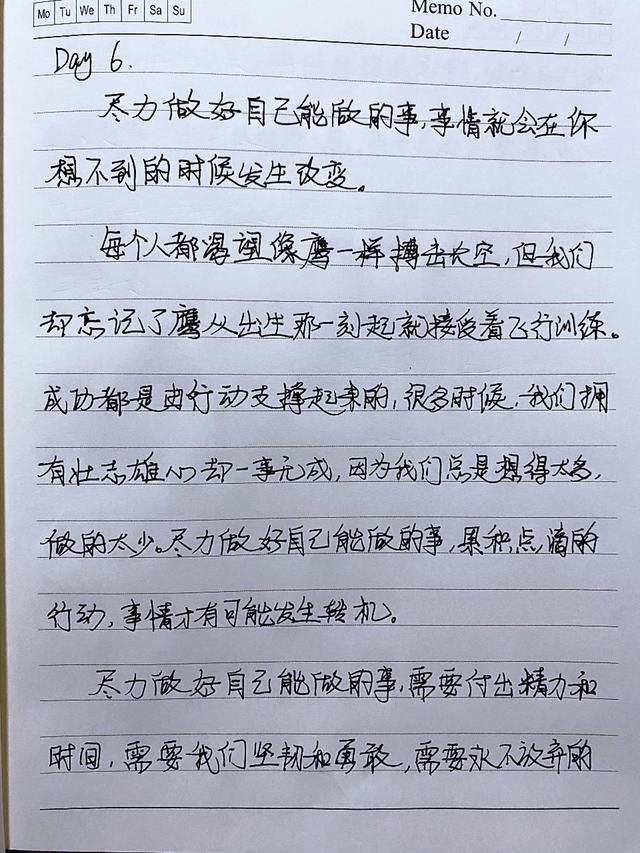 Mo Tu We Th Fr Sa Su
Memo No.
Date / /
Day 6.
尽力做好自己能做的事,事情就会在你
想不到的时候发生改变。
每个人都渴望像鹰一样搏击长空,但我们
却忘记了鹰从出生那一刻起就接受着飞行训练。
成功都是由行动支撑起来的,很多时候,我们拥
有壮志雄心却一事无成,因为我们总是想得太多,
做的太少。尽力做好自己能做的事,累积点滴的
行动,事情才有可能发生转机。
尽力做好自己能做的事,需要付出精力和
时间,需要我们坚韧和勇敢,需要永不放弃的